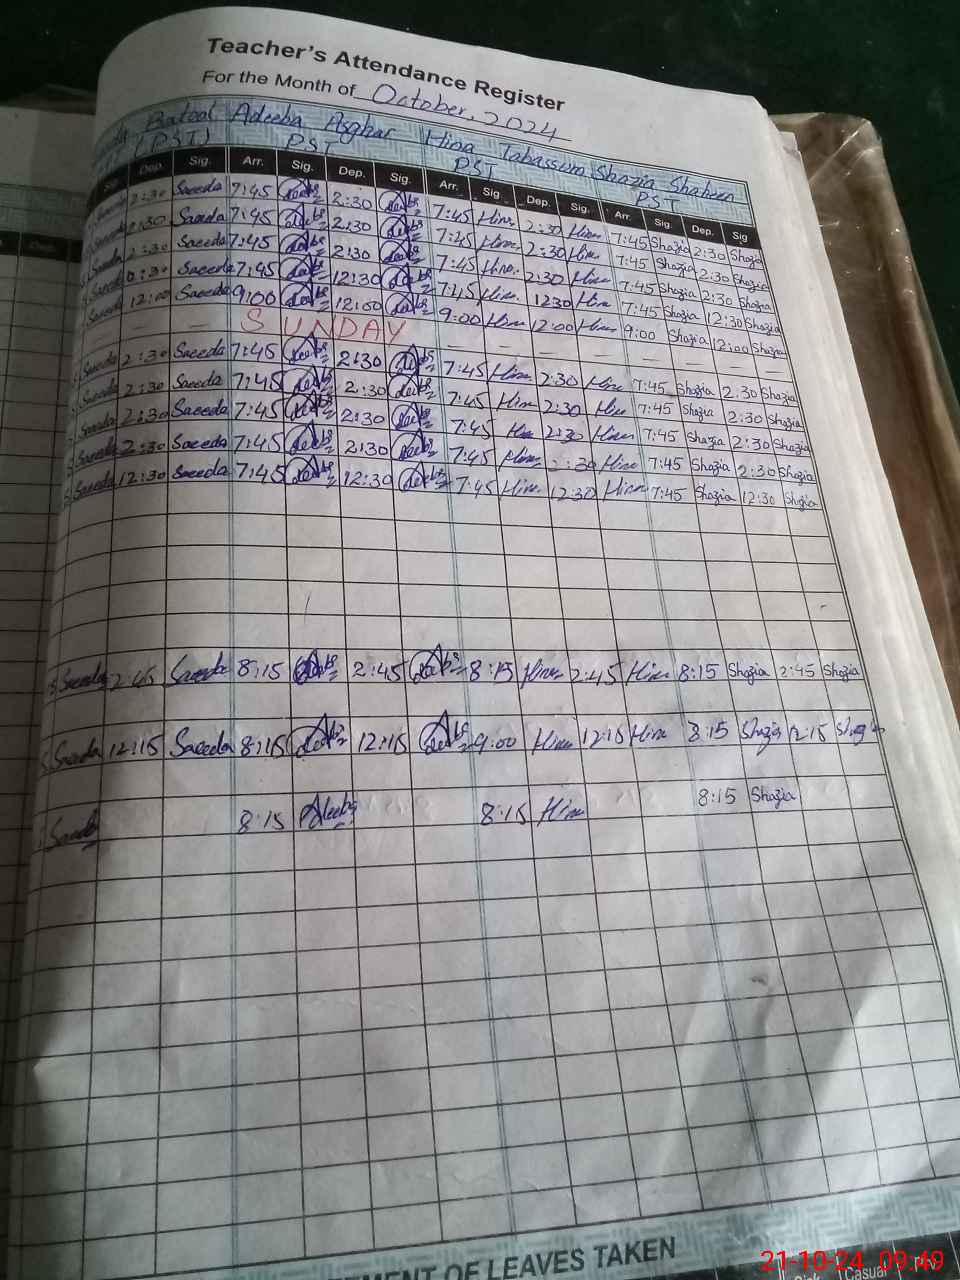 Teacher's Attendance Register
For the Month of October, 2024
Batool Adeeba Asghar Hina Tabassum Shazia Shaheen
(PST) PST PST PST
Dep. Sig. Arr. Sig. Dep. Sig. Arr. Sig. Dep. Sig. Arr. Sig. Dep. Sig
2:30 Saeeda 7:45 2:30 7:45 Hina 2:30 Hina 7:45 Shazia 2:30 Shazia
2:30 Saeeda 7:45 2:30 7:45 Hina 2:30 Hina 7:45 Shazia 2:30 Shazia
2:30 Saeeda 7:45 2:30 7:45 Hina 2:30 Hina 7:45 Shazia 2:30 Shazia
Saeeda 7:45 12:30 7:45 Hina 1230 Hina 7:45 Shazia 12:30 Shazia
Saeeda 12:00 Saeeda 9:00 12:00 9:00 Hina 12:00 Hina 9:00 Shazia 12:00 Shazia
— — SUNDAY — — — — — — — —
Saeeda 2:30 Saeeda 7:45 2:30 7:45 Hina 2:30 Hina 7:45 Shazia 2:30 Shazia
Saeeda 2:30 Saeeda 7:45 2:30 7:45 Hina 2:30 Hina 7:45 Shazia 2:30 Shazia
Saeeda 2:30 Saeeda 7:45 2:30 7:45 Hina 2:30 Hina 7:45 Shazia 2:30 Shazia
Saeeda 2:30 Saeeda 7:45 2:30 7:45 Hina 2:30 Hina 7:45 Shazia 2:30 Shazia
Saeeda 12:30 Saeeda 7:45 12:30 7:45 Hina 12:30 Hina 7:45 Shazia 12:30 Shazia
Saeeda 2:45 Saeeda 8:15 2:45 8:15 Hina 2:45 Hina 8:15 Shazia 2:45 Shazia
Saeeda 12:15 Saeeda 8:15 12:15 9:00 Hina 12:15 Hina 8:15 Shazia 12:15 Shazia
Saeeda 8:15 Adeeba 8:15 Hina 8:15 Shazia
OF LEAVES TAKEN
Casual Pay
21-10-24 09:49